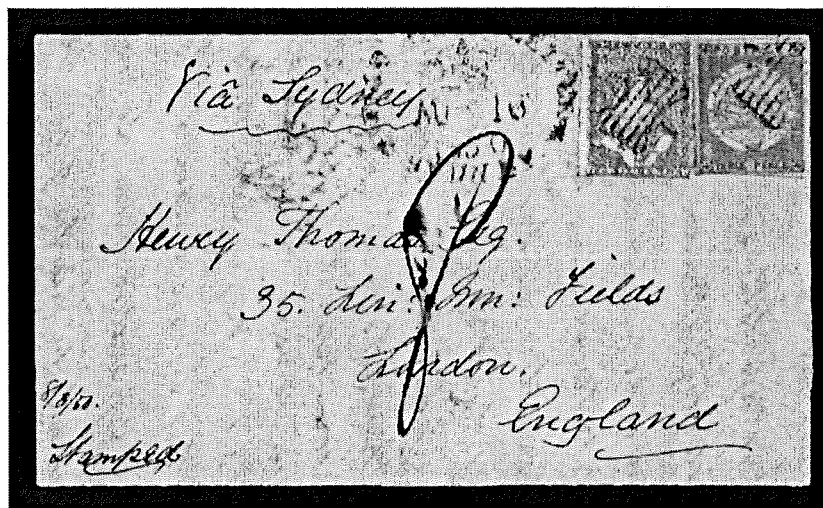 Via Sydney
Henry Thomas Esq.
35. Lin: Inn: Fields
London.
England
8/8/51.
Stamped
8